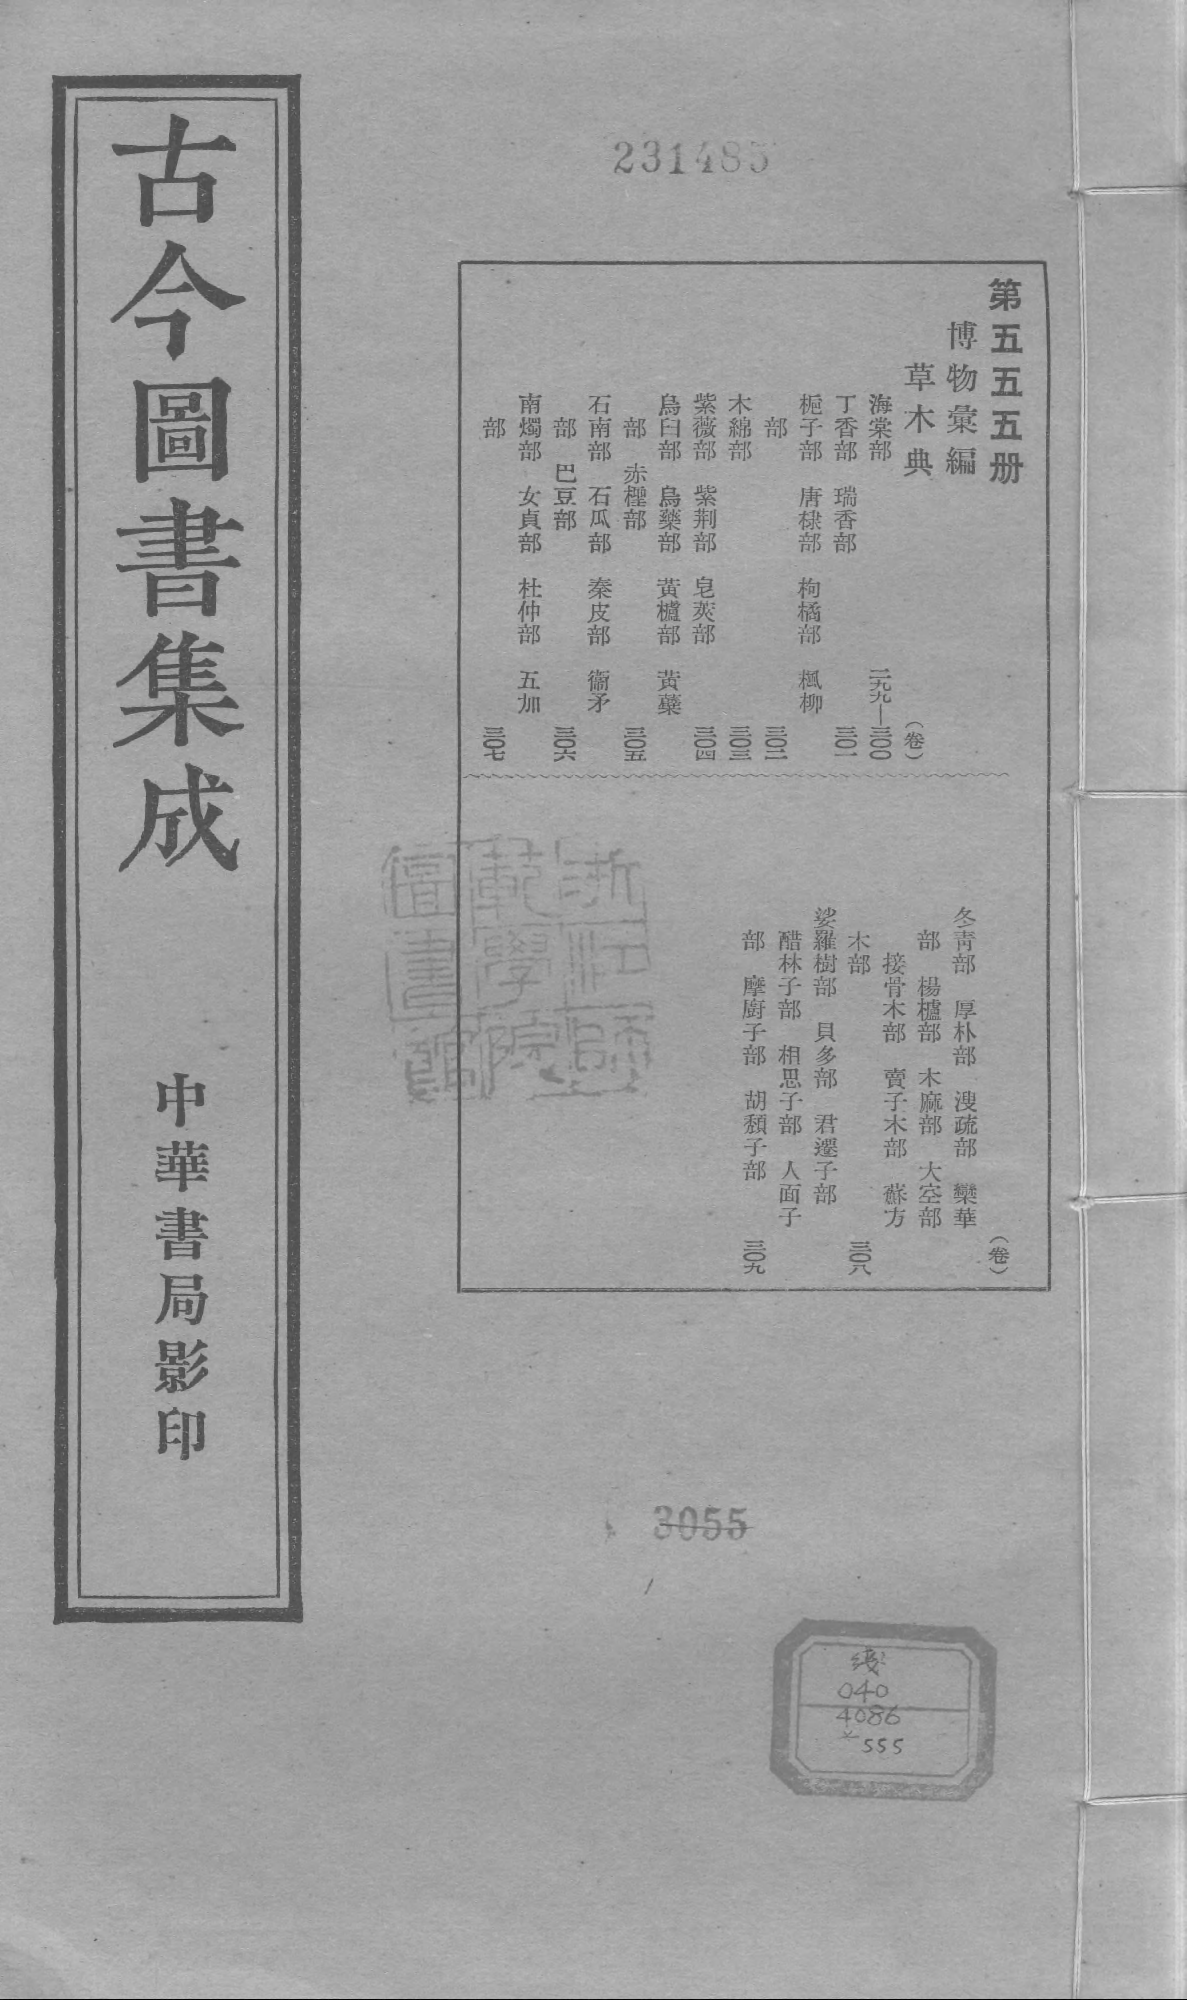 231485
第五五五册
博物彙編
草木典
（卷）
海棠部 二九九—三〇〇
丁香部 瑞香部 三〇一
梔子部 唐棣部 枸橘部 楓柳
部 三〇二
木綿部 三〇三
紫薇部 紫荆部 皂莢部 三〇四
烏臼部 烏藥部 黃櫨部 黃蘗
部 赤檉部 三〇五
石南部 石瓜部 秦皮部 衞矛
部 巴豆部 三〇六
南燭部 女貞部 杜仲部 五加
部 三〇七
（卷）
冬青部 厚朴部 溲疏部 欒華
部 楊櫨部 木麻部 大空部
接骨木部 賣子木部 蘇方
木部 三〇八
娑羅樹部 貝多部 君遷子部
醋林子部 相思子部 人面子
部 摩廚子部 胡頹子部 三〇九
古今圖書集成
中華書局影印
浙江師
範學院
圖書館
3055
线
040
4086
555